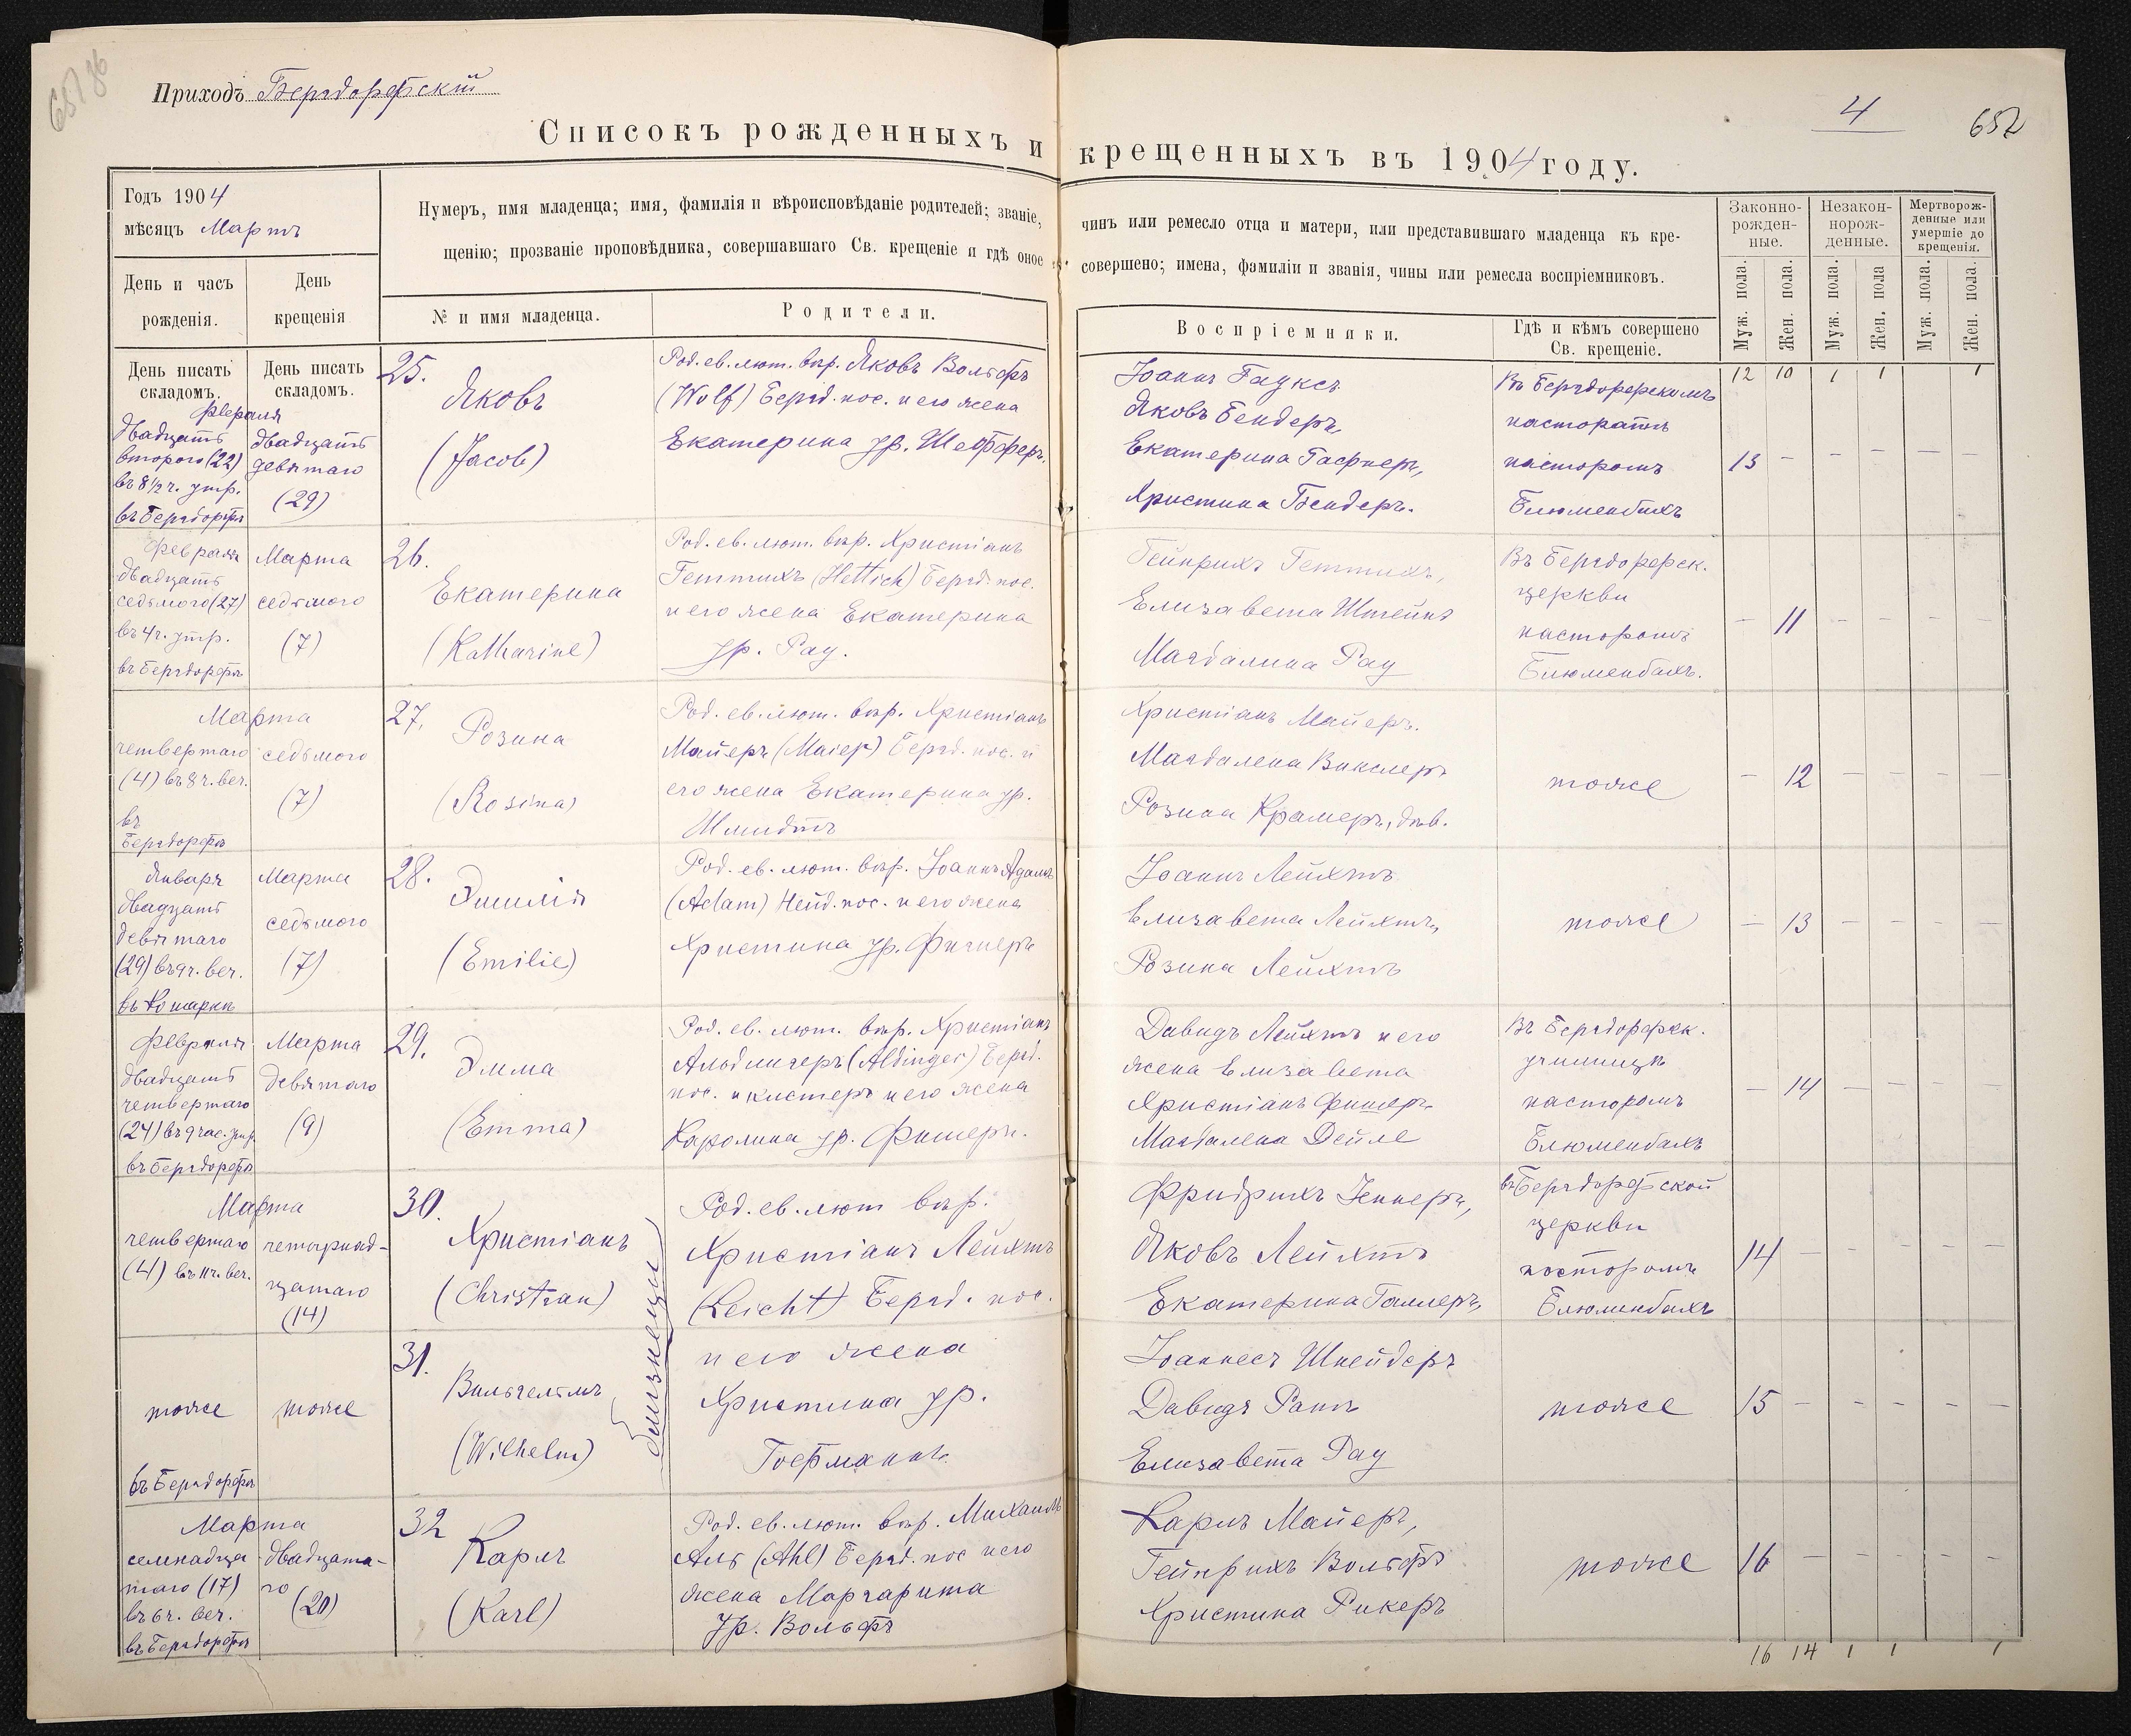 Приходъ Бергдорфскій
4
652
Списокъ рожденныхъ и крещенныхъ въ 1904 году.
Годъ 1904
мѣсяцъ Мартъ
Нумеръ, имя младенца; имя, фамилія и вѣроисповѣданіе родителей; званіе, чинъ или ремесло отца и матери, или представившаго младенца къ кре-
щенію; прозваніе проповѣдника, совершавшаго Св. крещеніе и гдѣ оное совершено; имена, фамиліи и званія, чины или ремесла воспріемниковъ.
День и часъ рожденія.
День крещенія
№ и имя младенца.
Родители.
Воспріемники.
Гдѣ и кѣмъ совершено
Св. крещеніе.
Законно-
рожден-
ные.
Незакон-
норож-
денные.
Мертворож-
денные или
умершіе до
крещенія.
Муж. пола.
Жен. пола.
Муж. пола.
Жен. пола
Муж. пола.
Жен. пола.
День писать
складомъ.
День писать
складомъ.
12 10 1 1 1
Февраля
двадцать
второго (22)
въ 8 1/2 ч. утр.
въ Бергдорфѣ
двадцать
девятаго
(29)
25.
Яковъ
(Jacob)
Род. ев. лют. вѣр. Яковъ Вольфъ
(Wolf) Бергд. пос. и его жена
Екатерина ур. Шефферъ.
Іоаннъ Гауксъ
Яковъ Бендеръ,
Екатерина Гафнеръ,
Христина Бендеръ.
Въ Бергдорфскомъ
пасторатѣ
пасторомъ
Блюменбахъ
13 – – – – –
Февраля
двадцать
седьмого (27)
въ 4 ч. утр.
въ Бергдорфѣ
Марта
седьмого
(7)
26.
Екатерина
(Katharine)
Род. ев. лют. вѣр. Христіанъ
Геттихъ (Hettich) Бергд. пос.
и его жена Екатерина
ур. Рау.
Гейнрихъ Геттихъ,
Елизавета Штейнъ
Магдалина Рау
Въ Бергдорфск.
церкви
пасторомъ
Блюменбахъ.
– 11 – – – –
Марта
четвертаго
(4) въ 8 ч. веч.
въ
Бергдорфѣ
седьмого
(7)
27.
Розина
(Rosina)
Род. ев. лют. вѣр. Христіанъ
Майеръ (Maier) Бергд. пос. и
его жена Екатерина ур.
Шмидтъ
Христіанъ Майеръ.
Магдалена Винклеръ
Розина Крамеръ, дѣв.
тоже
– 12 – – – –
Января
двадцать
девятаго
(29) въ 9 ч. веч.
въ Кошаркѣ
Марта
седьмого
(7)
28.
Эмилія
(Emilie)
Род. ев. лют. вѣр. Іоаннъ Адамъ
(Adam) Нейд. пос. и его жена
Христина ур. Фигнеръ
Іоаннъ Лейхтъ
Елизавета Лейхтъ,
Розина Лейхтъ
тоже
– 13 – – – –
Февраля
двадцать
четвертаго
(24) въ 9 час. утр.
въ Бергдорфѣ
Марта
девятаго
(9)
29.
Эмма
(Emma)
Род. ев. лют. вѣр. Христіанъ
Альдингеръ (Aldinger) Бергд.
пос. и кистеръ и его жена
Каролина ур. Фишеръ.
Давидъ Лейхтъ и его
жена Елизавета
Христіанъ Фишеръ
Магдалена Дейле
Въ Бергдорфск.
училищѣ
пасторомъ
Блюменбахъ
– 14 – – – –
Марта
четвертаго
(4) въ 11 ч. веч.
четырнад-
цатаго
(14)
30.
Христіанъ
(Christian)
близнецы
Род. ев. лют вѣр.
Христіанъ Лейхтъ
(Leicht) Бергд. пос.
Фридрихъ Кеннеръ,
Яковъ Лейхтъ
Екатерина Галлеръ,
въ Бергдорфской
церкви
пасторомъ
Блюменбахъ
14 – – – – –
тоже
въ Бергдорфѣ
тоже
31.
Вильгельмъ
(Wilhelm)
и его жена
Христина ур.
Гофманнъ.
Іоаннесъ Шнейдеръ
Давидъ Раннъ
Елизавета Рау
тоже
15 – – – – –
Марта
семнадца
таго (17)
въ 6 ч. веч.
въ Бергдорфѣ
двадцата-
го
(20)
32
Карлъ
(Karl)
Род. ев. лют. вѣр. Михаилъ
Аль (Ahl) Бергд. пос и его
жена Маргарита
ур. Вольфъ
Карлъ Майеръ,
Гейнрихъ Вольфъ
Христина Рикеръ
тоже
16 – – – – –
16 14 1 1 1